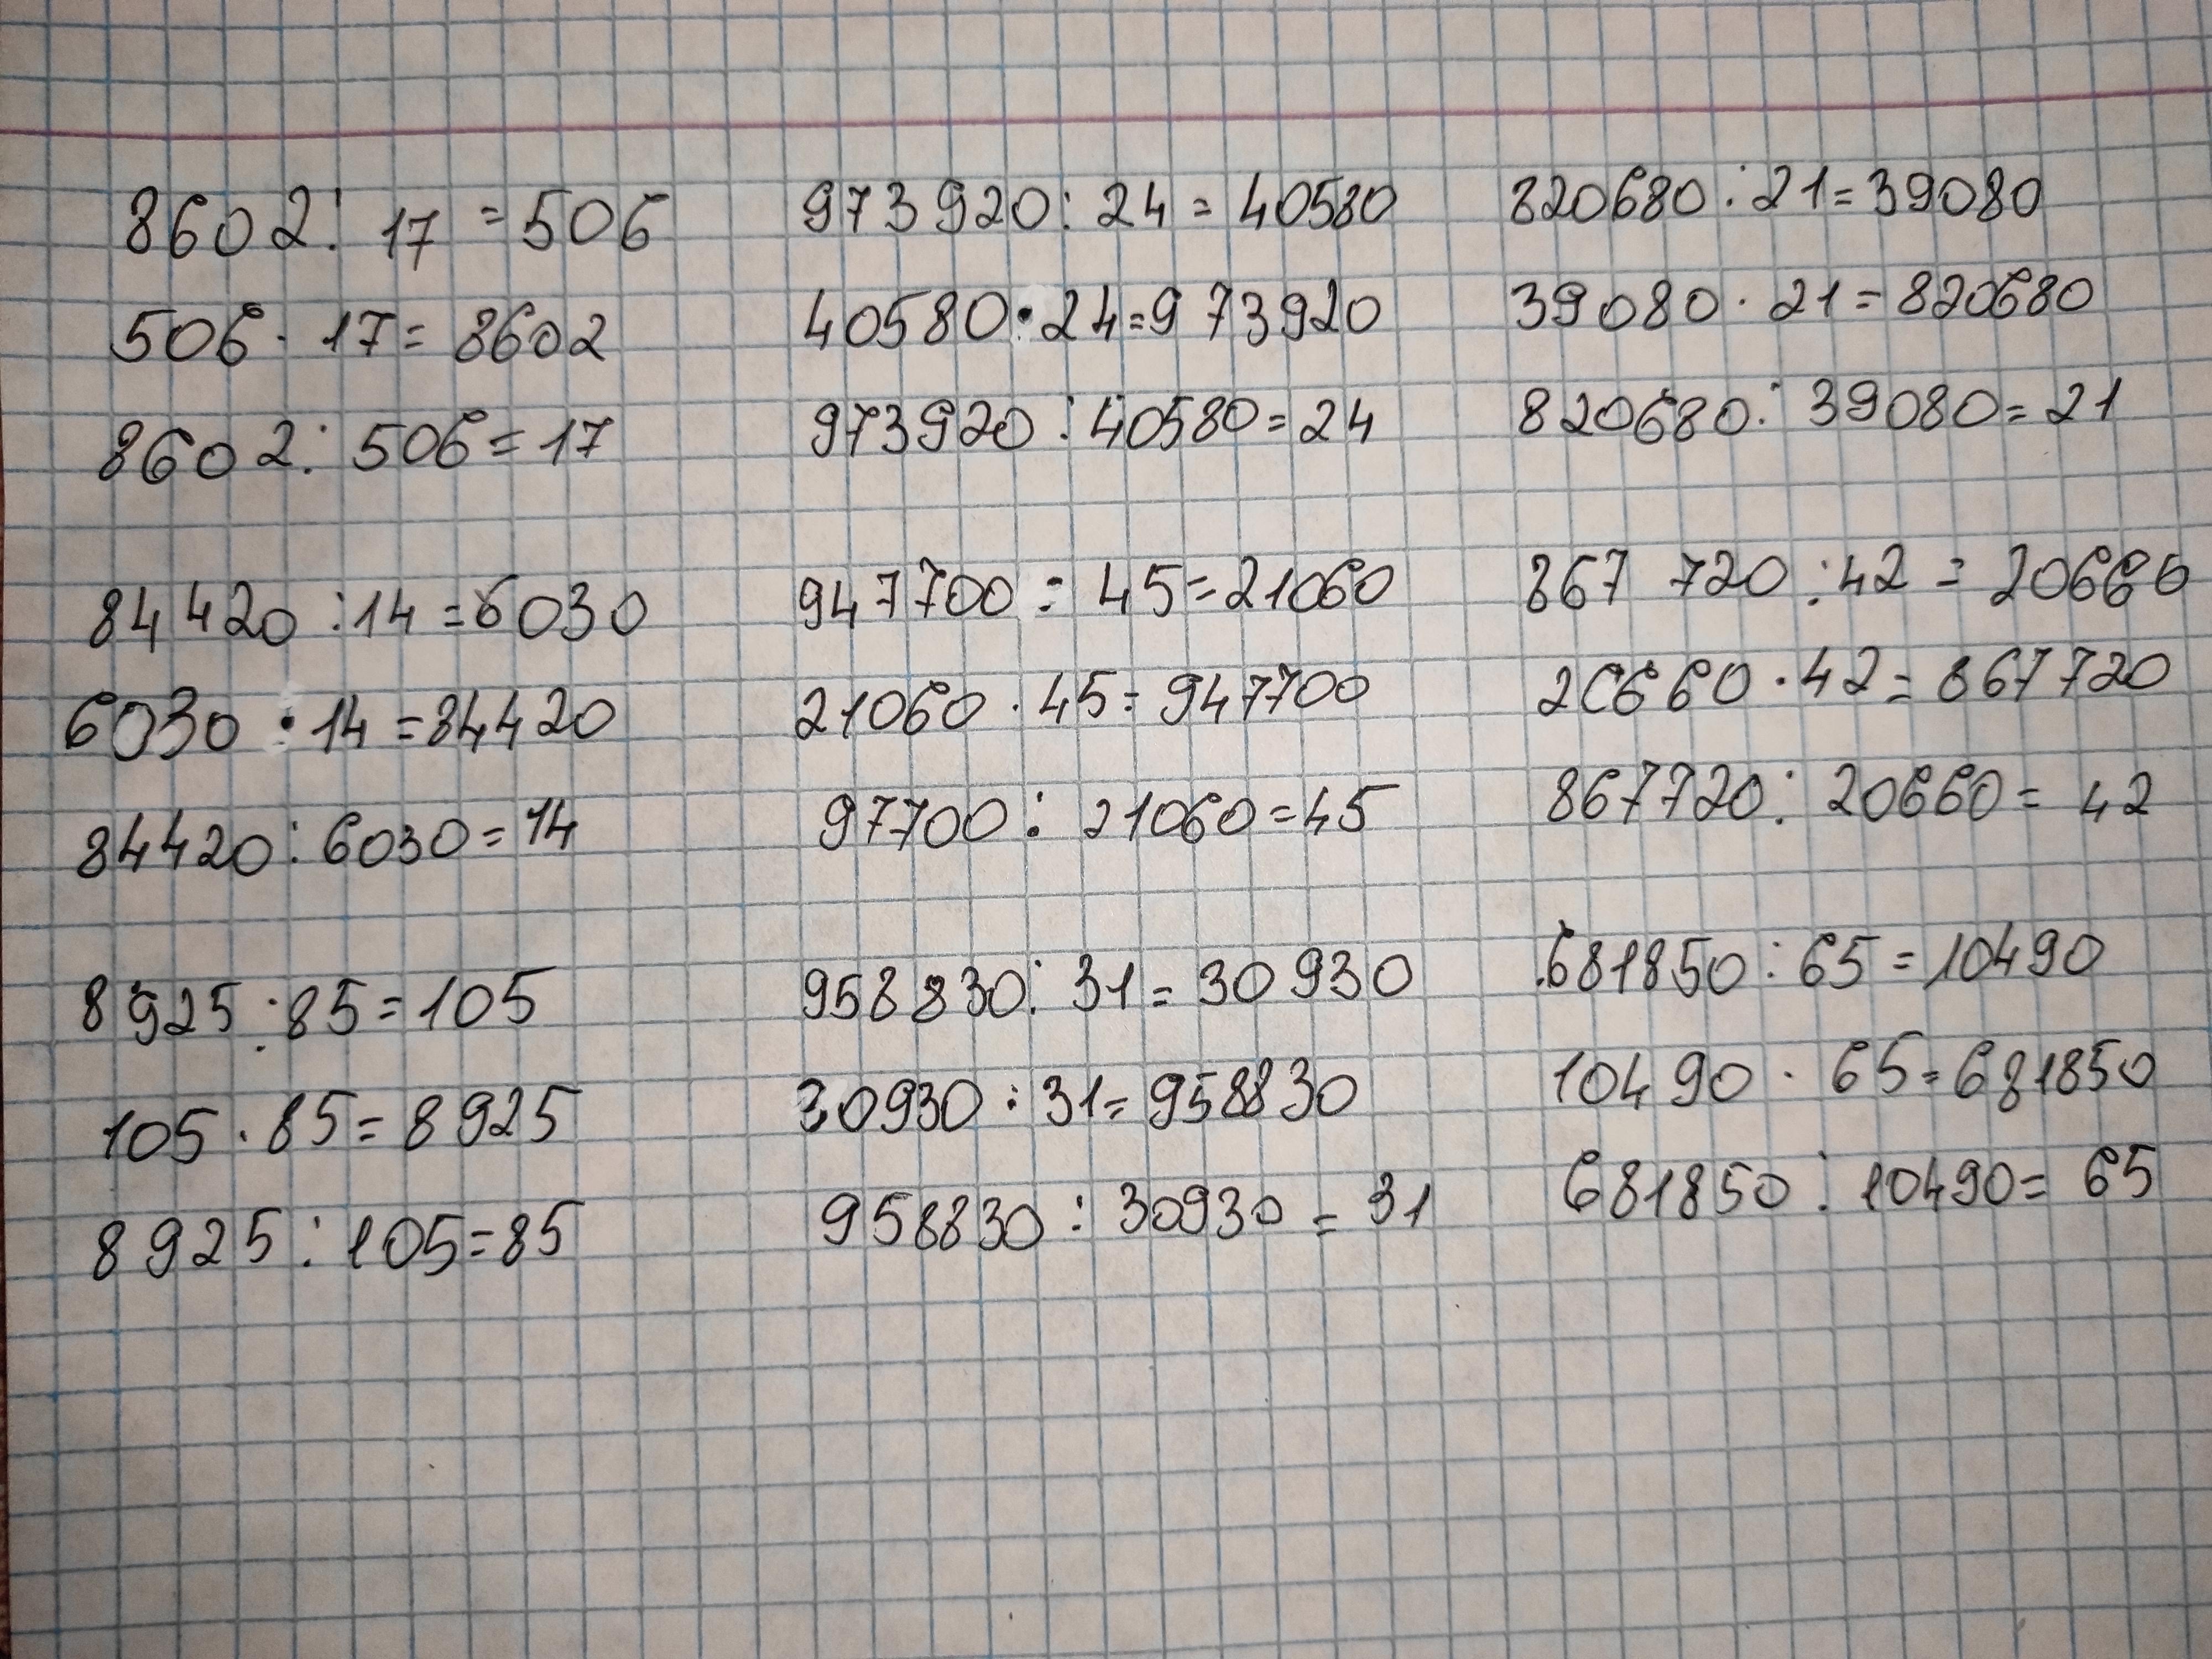 8602 : 17 = 506
506 · 17 = 8602
8602 : 506 = 17
84420 : 14 = 6030
6030 · 14 = 84420
84420 : 6030 = 14
8925 : 85 = 105
105 · 85 = 8925
8925 : 105 = 85
973920 : 24 = 40580
40580 · 24 = 973920
973920 : 40580 = 24
947700 : 45 = 21060
21060 · 45 = 947700
97700 : 21060 = 45
958830 : 31 = 30930
30930 : 31 = 958830
958830 : 30930 = 31
820680 : 21 = 39080
39080 · 21 = 820680
820680 : 39080 = 21
867 720 : 42 = 20660
20660 · 42 = 867720
867720 : 20660 = 42
681850 : 65 = 10490
10490 · 65 = 681850
681850 : 10490 = 65